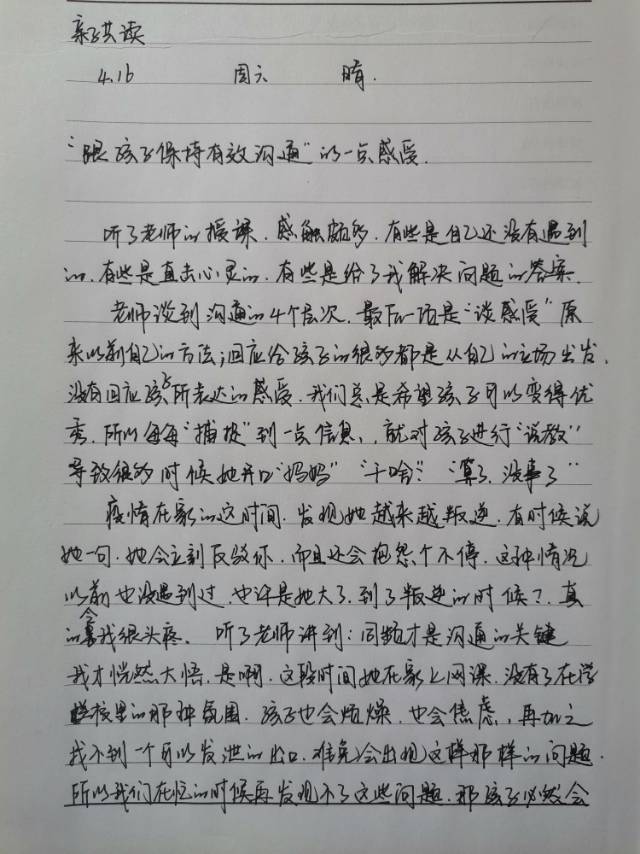 亲子共读
4.16 周六 晴.
“跟孩子保持有效沟通”的一点感受.
听了老师的授课.感触颇多.有些是自己还没有遇到
的.有些是直击心灵的.有些是给了我解决问题的答案.
老师谈到沟通的4个层次.最后一话是“谈感受”原
来以前自己的方法;回应给孩子的很多都是从自己的立场出发.
没有回应孩子所表达的感受.我们总是希望孩子可以变得优
秀.所以每每“捕捉”到一点信息,就对孩子进行“说教”
导致很多时候她开口“妈妈”“干啥”“算了.没事了”
疫情在家的这时间.发现她越来越叛逆.有时候说
她一句.她会立刻反驳你.而且还会抱怨个不停.这种情况
以前也没遇到过.也许是她大了.到了叛逆的时候?.真
的令我很头疼. 听了老师讲到:同频才是沟通的关键
我才恍然大悟.是啊.这段时间她在家上网课.没有了在学
校里的那种氛围.孩子也会烦燥.也会焦虑,再加之
找不到一个可以发泄的出口.难免会出现这样那样的问题.
所以我们在忙的时候再发现不了这些问题.那孩子必然会